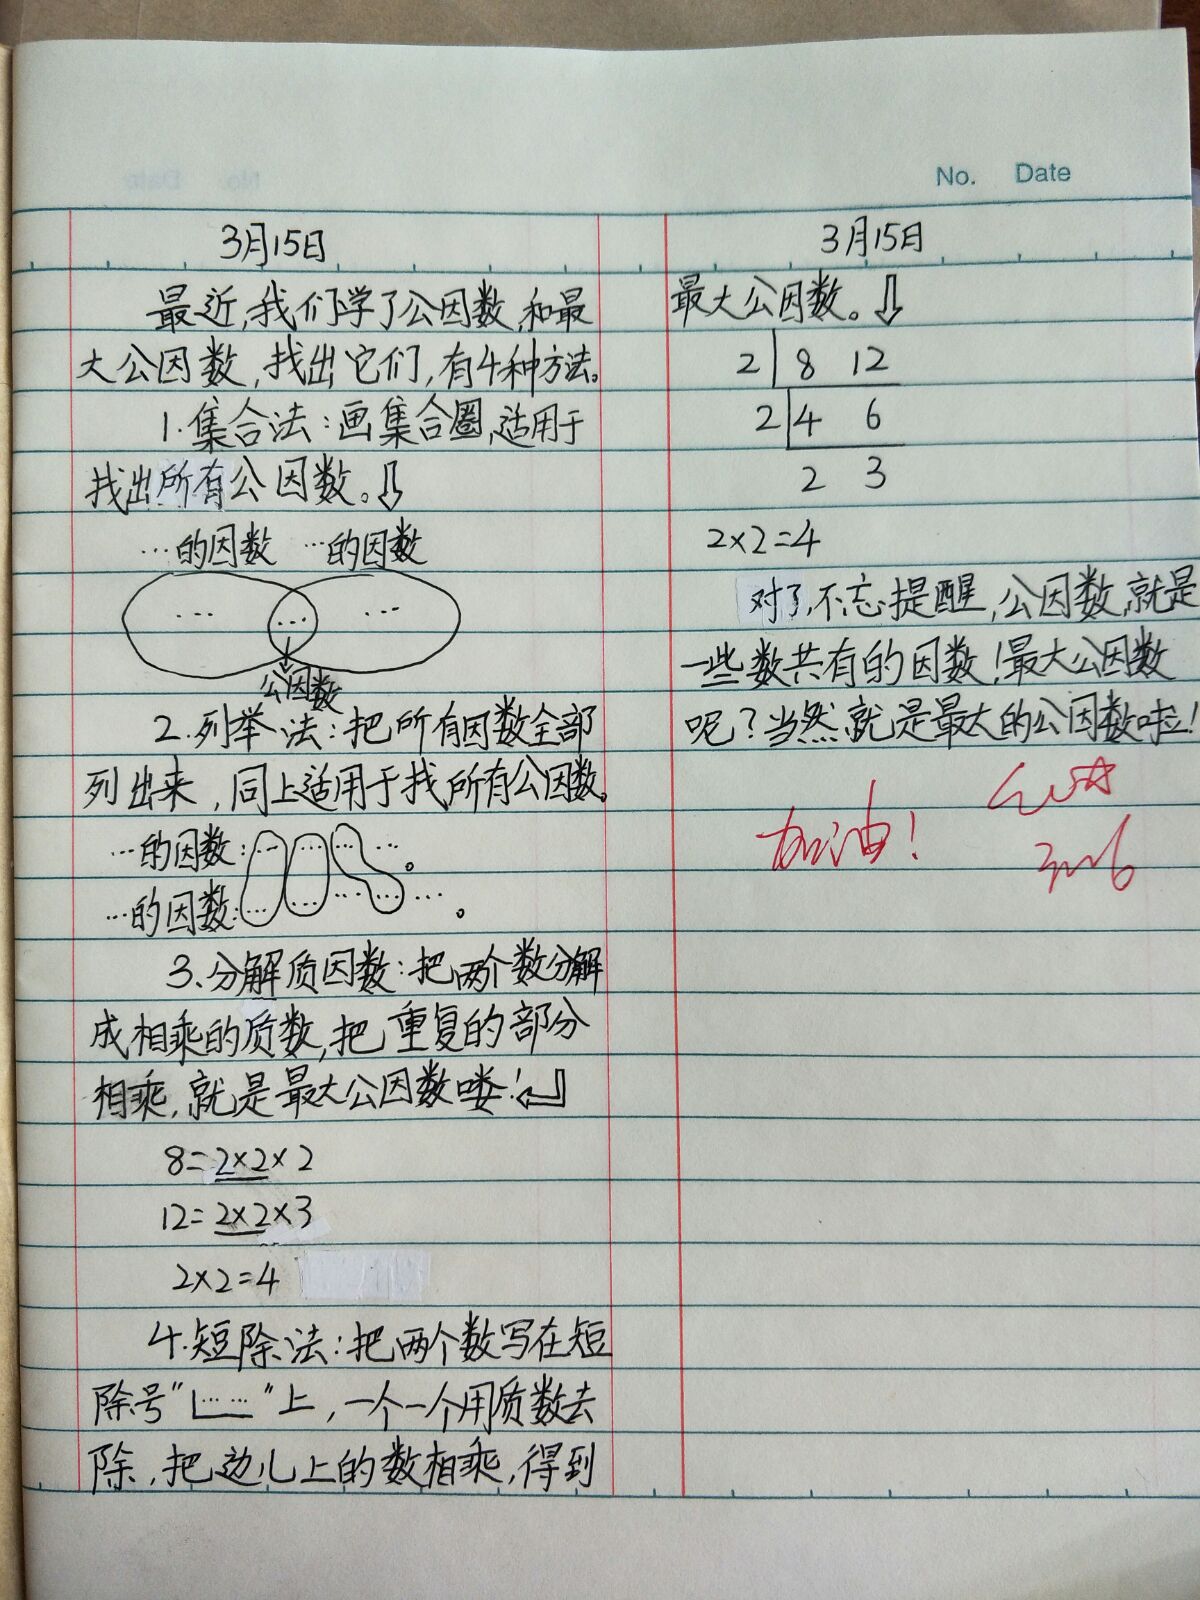 No. Date
3月15日
最近,我们学了公因数,和最
大公因数,找出它们,有4种方法。
1.集合法:画集合圈,适用于
找出所有公因数。⇩
…的因数 …的因数
… … …
公因数
2.列举法:把所有因数全部
列出来,同上适用于找所有公因数。
…的因数: … … … …。
…的因数: … … … … …。
3.分解质因数:把两个数分解
成相乘的质数,把重复的部分
相乘,就是最大公因数喽!
8=2×2×2
12=2×2×3
2×2=4
4.短除法:把两个数写在短
除号"……"上,一个一个用质数去
除,把边儿上的数相乘,得到
3月15日
最大公因数。⇩
2 8 12
2 4 6
2 3
2×2=4
对了,不忘提醒,公因数,就是
一些数共有的因数!最大公因数
呢?当然就是最大的公因数啦!
加油!